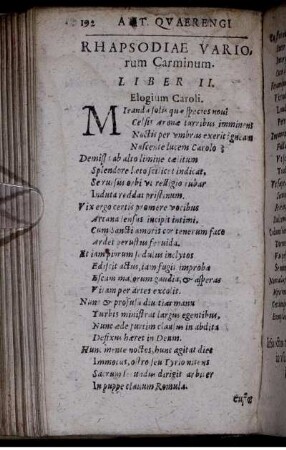 192 ANT. QVAERENGI
RHAPSODIAE VARIO,
rum Carminum.
LIBER II.
Elogium Caroli.
Miranda solis quæ species noui
Celsis arcuæ turribus imminens
Noctis per vmbras exerit igneam
Nascente lucem Carolo?
Demissa ab alto limine cælitum
Splendore læto scilicet indicat,
Se rursus orbi vt religio iubar
Induta reddat pristinum.
Vix ergo certis promere vocibus
Arcana sensus incipit intimi,
Cum sancti amoris cor tenerum face
Ardet perustus feruida.
Et iam priorum sedulus inclytos
Ediscit actus, iam fugit improba
Escam malorum gaudia, & asperas
Vitam per artes excolit.
Nunc & profusa diuitias manu
Turbis ministrat largus egentibus,
Nunc æde partim clausus in abdita
Defixus hæret in Deum.
Hunc mane noctes, hunc agitat dies
Immotus, ostro seu Tyrio nitens
Sacrum dirigit arbiter
In puppe clauum Romula.